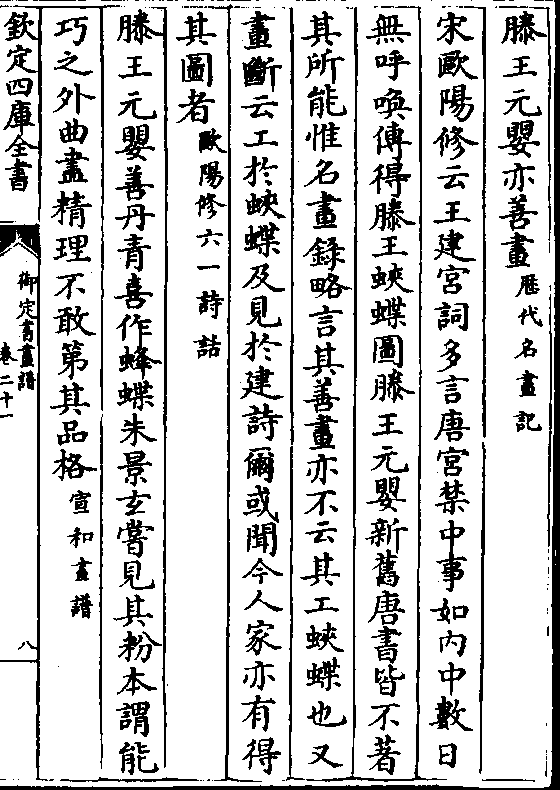 滕王元嬰亦善畫歷代名畫記
宋歐陽修云王建宮詞多言唐宮禁中事如内中數日
無呼喚傳得滕王蛺蝶圖滕王元嬰新舊唐書皆不著
其所能惟名畫錄略言其善畫亦不云其工蛺蝶也又
畫斷云工於蛺蝶及見於建詩爾或聞今人家亦有得
其圖者歐陽修六一詩話
滕王元嬰善丹青喜作蜂蝶朱景玄嘗見其粉本謂能
巧之外曲盡精理不敢第其品格宣和畫譜
欽定四庫全書
御定書畫譜
卷二十一
八